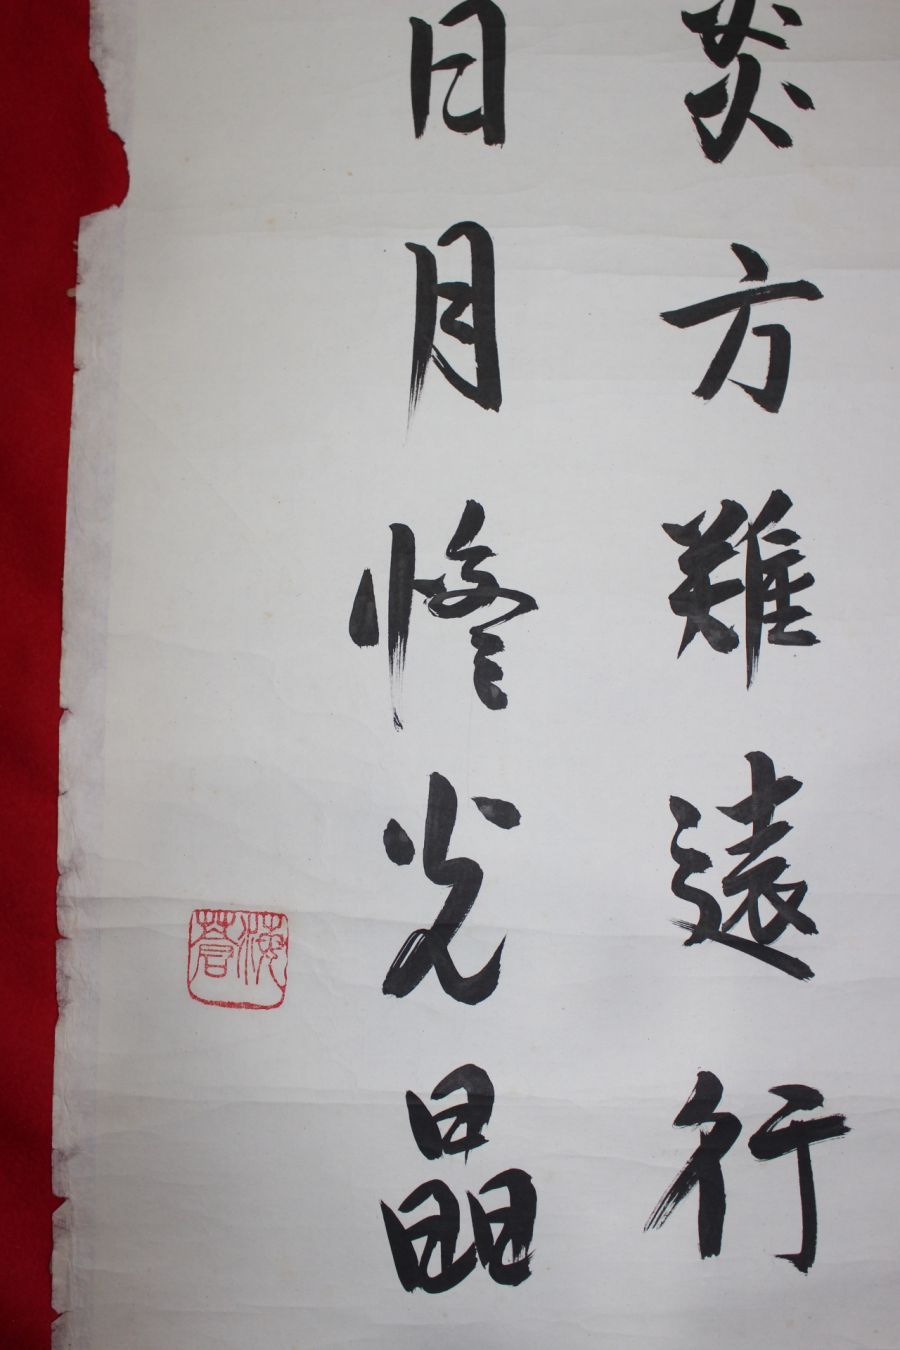 炎方難遠行
日月惨光晶